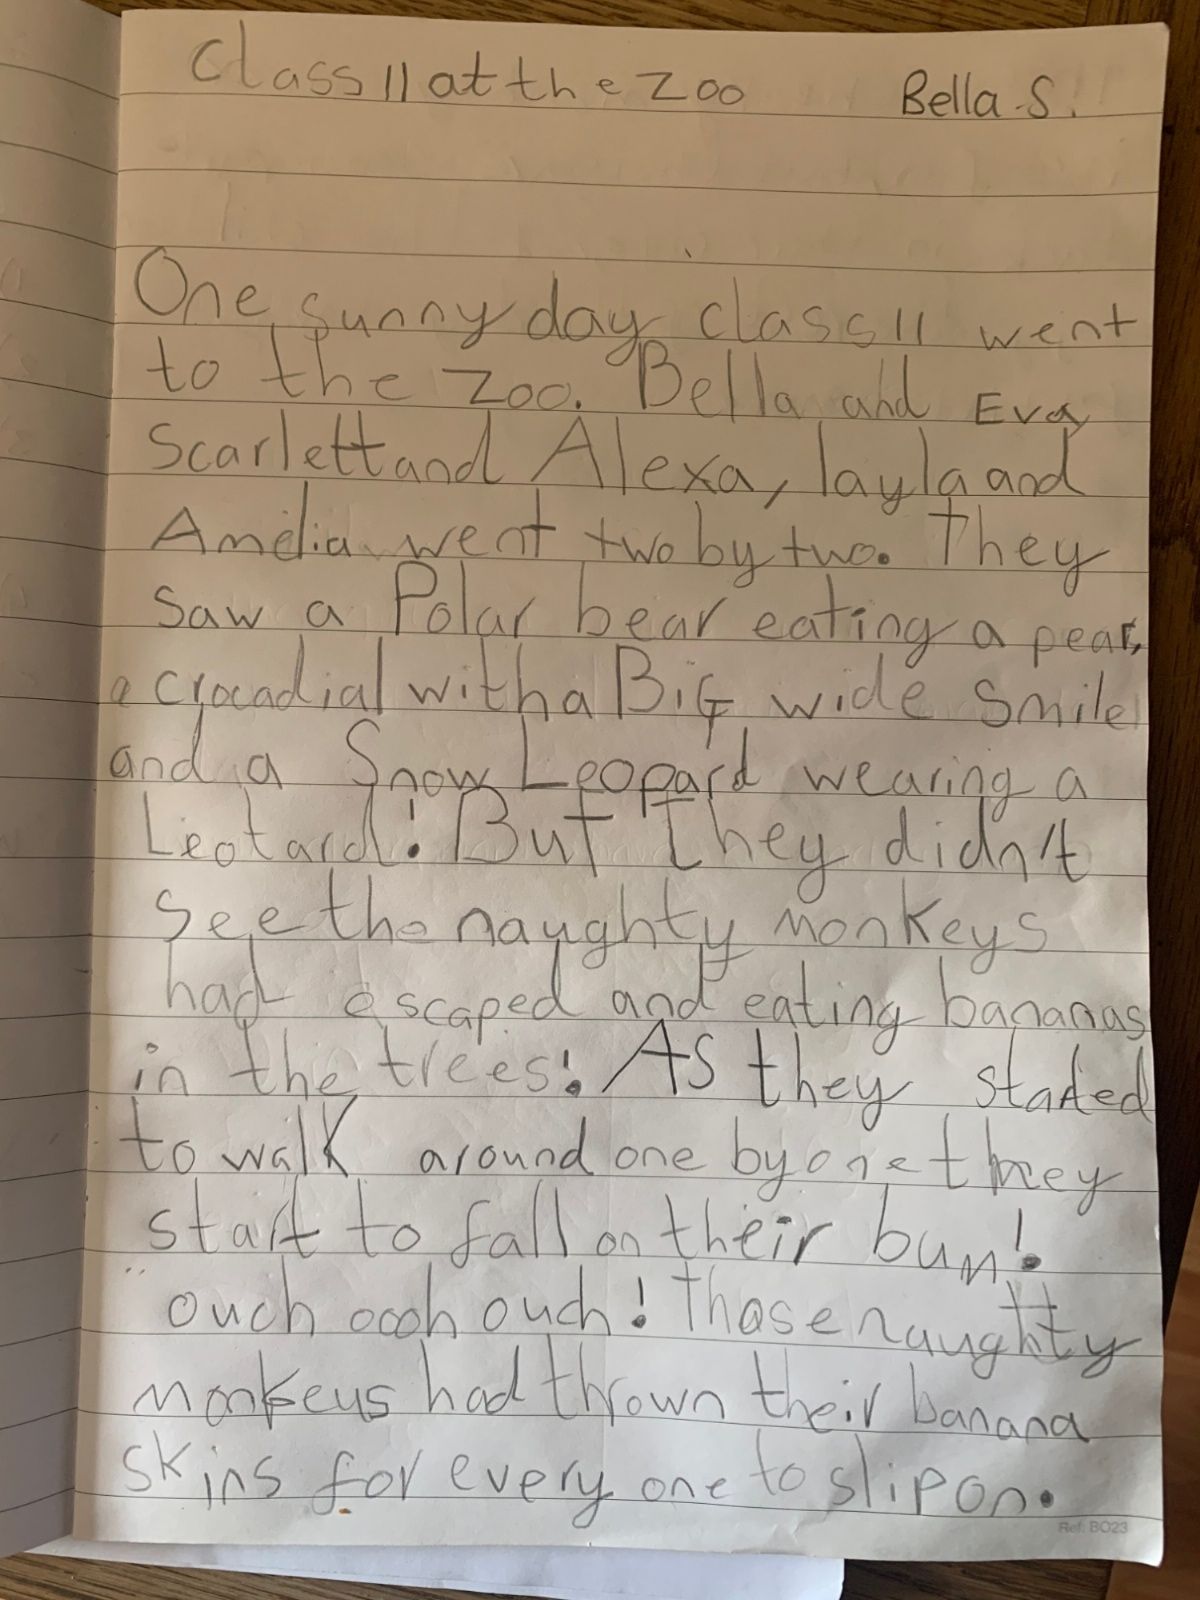 Class 11 at the Zoo Bella .S.
One sunny day class 11 went
to the zoo. Bella and Eva
Scarlett and Alexa, layla and
Amelia went two by two. They
saw a Polar bear eating a pear,
a crocadial with a BiG wide smile
and a Snow Leopard wearing a
Leotard! But They didn't
see the naughty monkeys
had escaped and eating bananas
in the trees! As they started
to walk around one by one they
start to fall on their bum!
ouch oooh ouch! Those naughty
monkeys had thrown their banana
skins for every one to slip on.
Ref: BO23